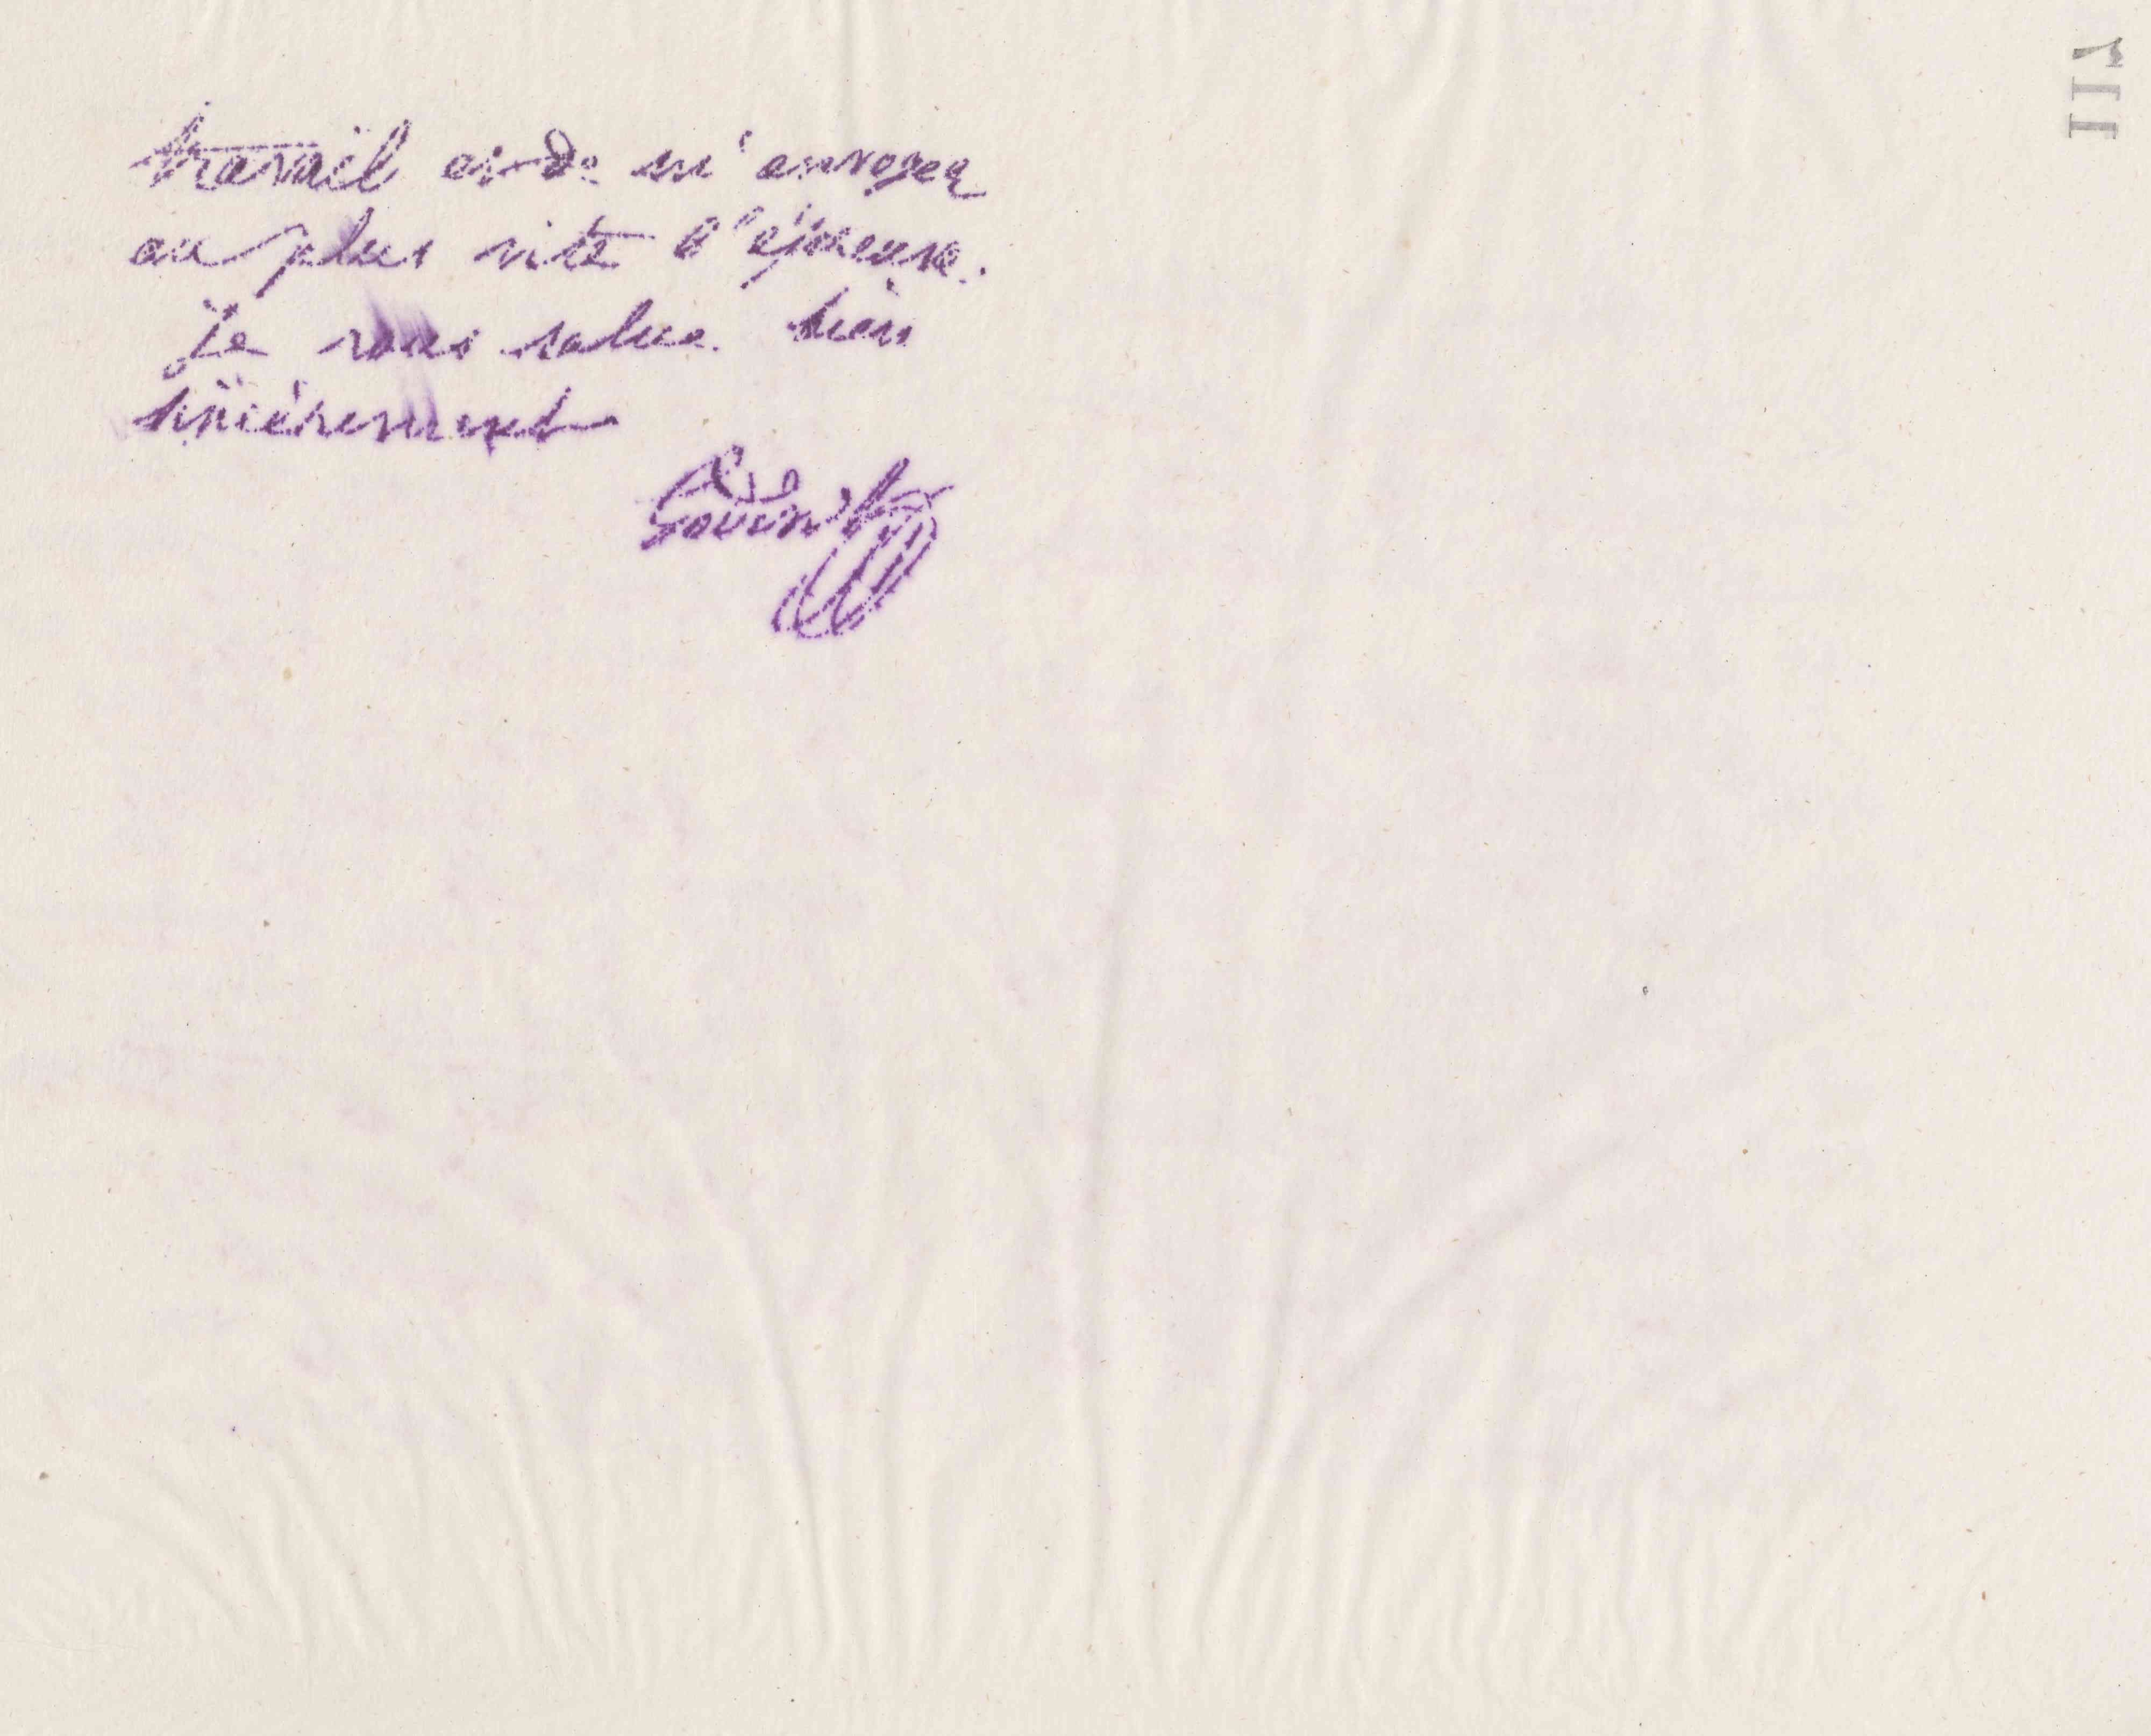 travail et de m'envoyer
au plus vite l'épreuve.
Je vous salue bien
sincèrement
Godin
117